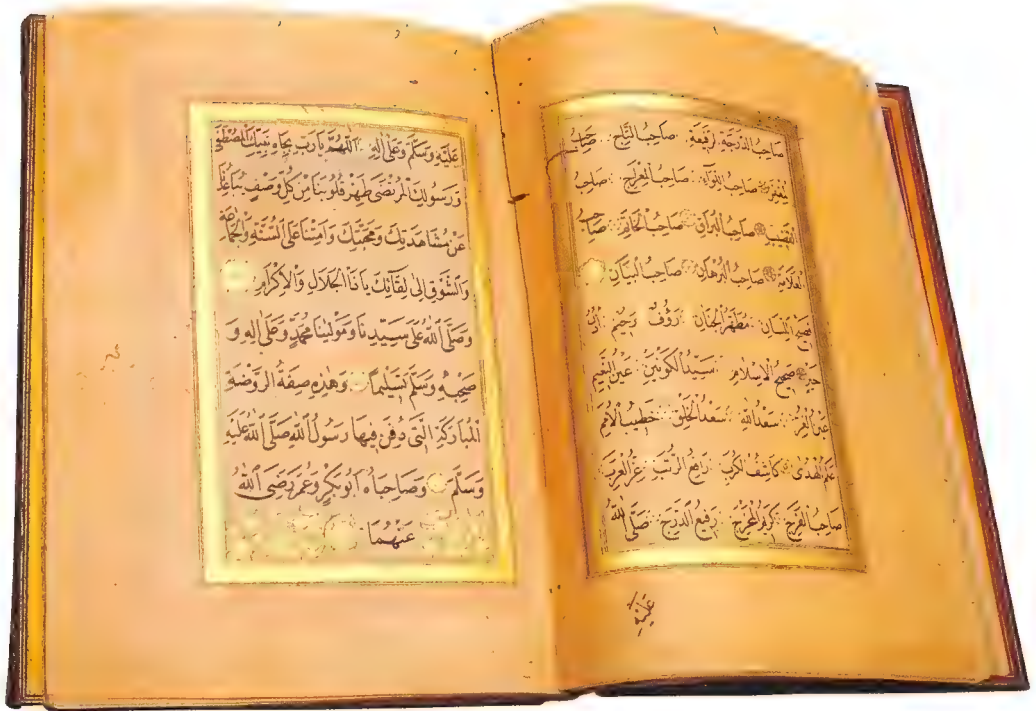 صَاحِبُ الدَّرَجَةِ رَفِيعَةِ صَاحِبُ التَّاجِ صَاحِبُ
الْمِغْفَرِ صَاحِبُ اللِّوَآءِ صَاحِبُ الْمِعْرَاجِ صَاحِبُ
الْقَضِيبِ صَاحِبُ الْبُرَاقِ صَاحِبُ الْخَاتَمِ صَاحِبُ
الْعَلَامَةِ صَاحِبُ الْبُرْهَانِ صَاحِبُ الْبَيَانِ
فَصِيحُ اللِّسَانِ مُطَهَّرُ الْجَنَانِ رَؤُفٌ رَحِيمٌ اُذُنُ
خَيْرٍ صَحِيحُ الْاِسْلَامِ سَيِّدُ الْكَوْنَيْنِ عَيْنُ النَّعِيمِ
عَيْنُ الْغُرِّ سَعْدُ اللّٰهِ سَعْدُ الْخَلْقِ خَطِيبُ الْاُمَمِ
عَلَمُ الْهُدٰى كَاشِفُ الْكُرَبِ رَافِعُ الرُّتَبِ عِزُّ الْعَرَبِ
صَاحِبُ الْفَرَجِ كَرِيمُ الْمَخْرَجِ رَفِيعُ الدَّرَجِ صَلَّى اللّٰهُ
عَلَيْهِ
عَلَيْهِ وَسَلَّمَ وَعَلٰى اٰلِهِ اَللّٰهُمَّ يَا رَبِّ بِجَاهِ نَبِيِّكَ الْمُصْطَفٰى
وَرَسُولِكَ الْمُرْتَضٰى طَهِّرْ قُلُوبَنَا مِنْ كُلِّ وَصْفٍ يُبَاعِدُنَا
عَنْ مُشَاهَدَتِكَ وَمَحَبَّتِكَ وَاَمِتْنَا عَلَى السُّنَّةِ وَالْجَمَاعَةِ
وَالشَّوْقِ اِلٰى لِقَآئِكَ يَا ذَا الْجَلَالِ وَالْاِكْرَامِ
وَصَلَّى اللّٰهُ عَلٰى سَيِّدِنَا وَمَوْلٰينَا مُحَمَّدٍ وَعَلٰى اٰلِهِ وَ
صَحْبِهِ وَسَلَّمَ تَسْلِيمًا وَهٰذِهِ صِفَةُ الرَّوْضَةِ
الْمُبَارَكَةِ الَّتِى دُفِنَ فِيهَا رَسُولُ اللّٰهِ صَلَّى اللّٰهُ عَلَيْهِ
وَسَلَّمَ وَصَاحِبَاهُ اَبُو بَكْرٍ وَعُمَرُ رَضِىَ اللّٰهُ
عَنْهُمَا